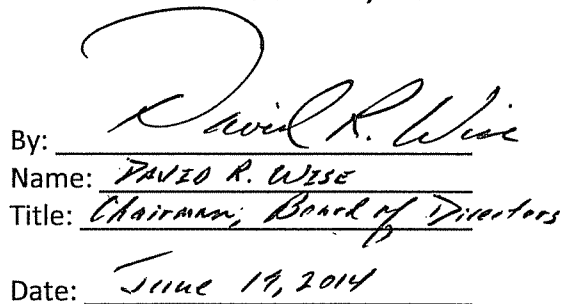 By: David R. Wise
Name: DAVID R. WISE
Title: Chairman, Board of Directors
Date: June 19, 2014